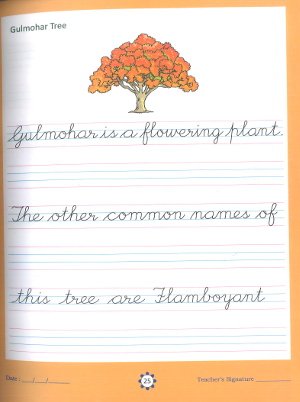 Gulmohar Tree
Gulmohar is a flowering plant.
The other common names of
this tree are Flamboyant
Date : ___/___/______
25
Teacher's Signature __________